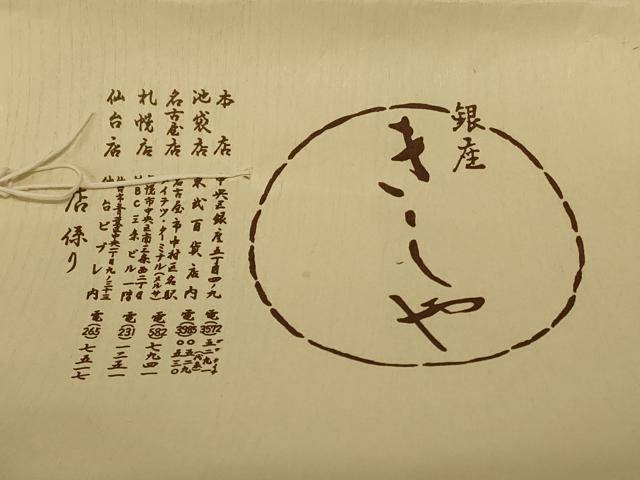 銀座
きしや
本店 中央区銀座五丁目四ノ九 電(3572)
池袋店 東武百貨店内 電(3985)〇五二九
名古屋店 名古屋市中村区名駅 〇五三〇
メイテツ・ターミナル(メルサ) 電(582)七九四一
札幌店 幌市中央区南三条西二丁目
HBC三条ビル一階 電(231)一二五一
仙台店
仙台ビブレ内 電(265)七五一七
店係り